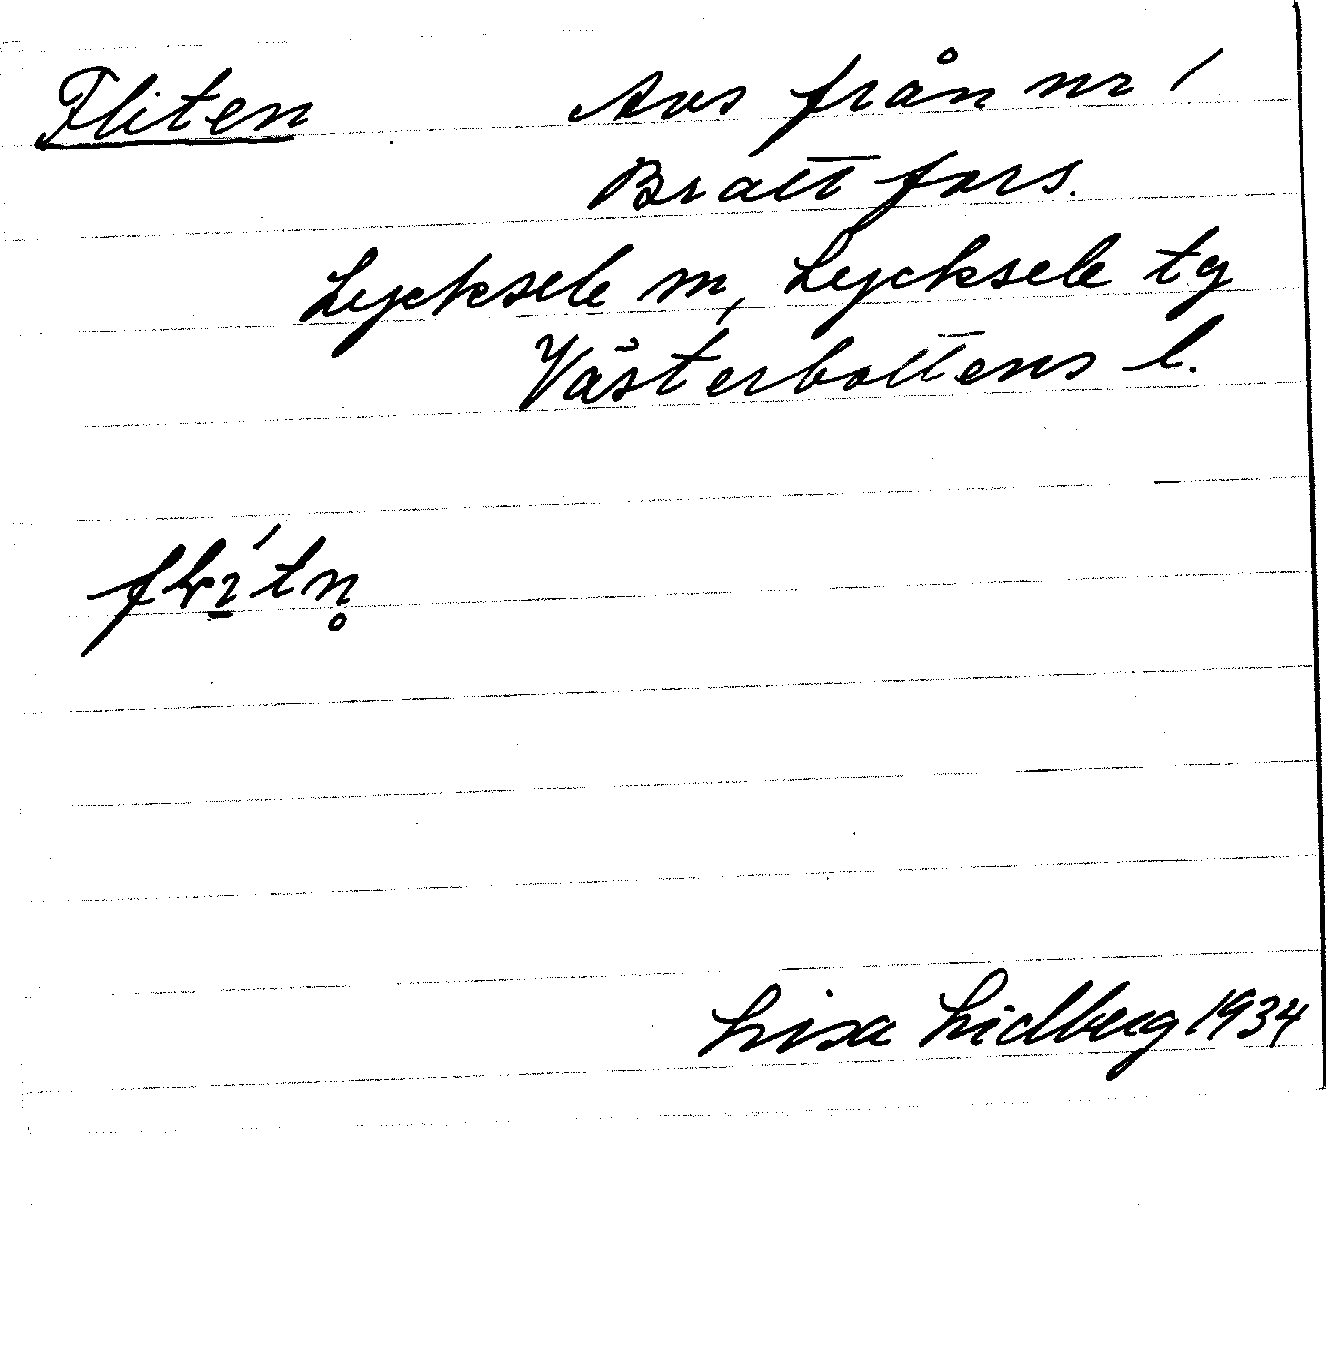 Fliten Avs från nr 1
Brattfors.
Lycksele m, Lycksele tg
Västerbottens l.
Lisa Lidberg 1934